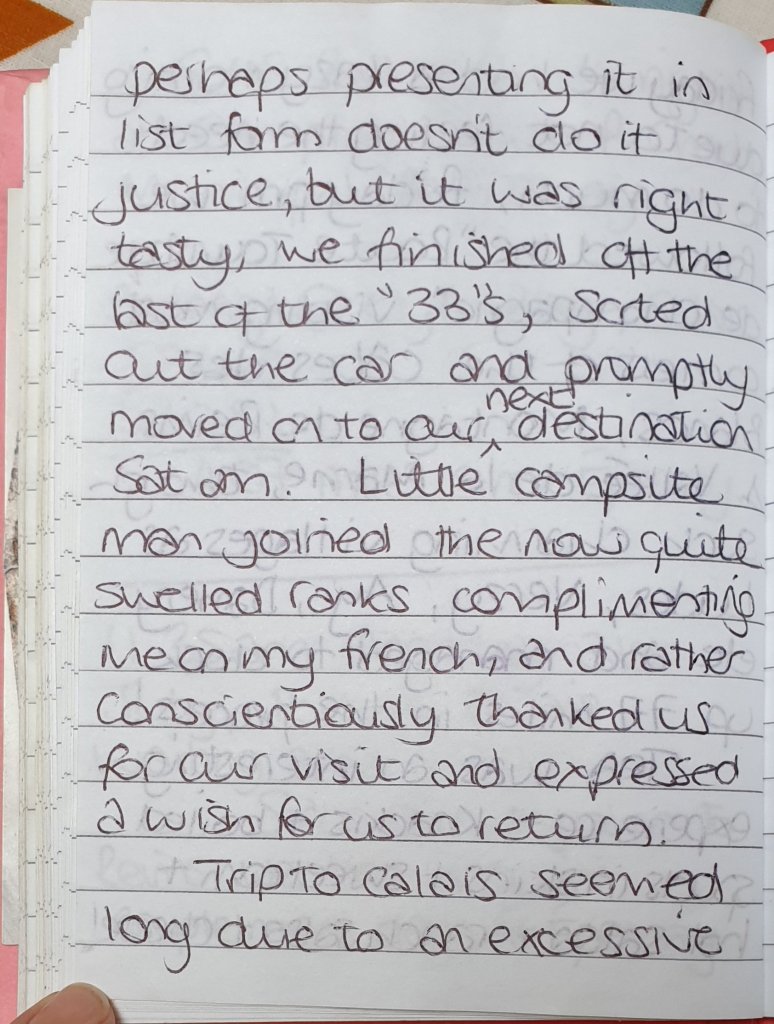 perhaps presenting it in
list form doesn't do it
justice, but it was right
tasty, we finished off the
last of the "33"s, sorted
out the car and promptly
moved on to our next destination
5at am. Little campsite
man joined the now quite
swelled ranks complimenting
me on my french, and rather
conscientiously thanked us
for our visit and expressed
a wish for us to return.
Trip to calais seemed
long due to an excessive